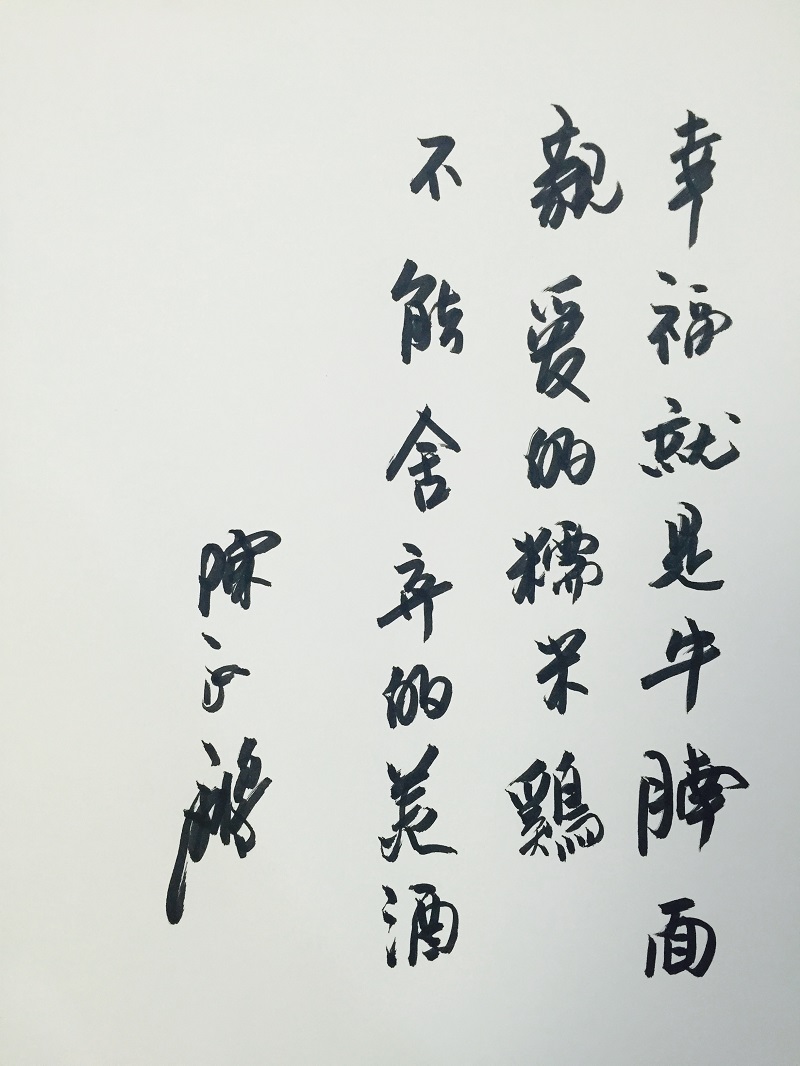 幸福就是牛腩面
親爱的糯米鷄
不能舍弃的美酒
陳正鴻